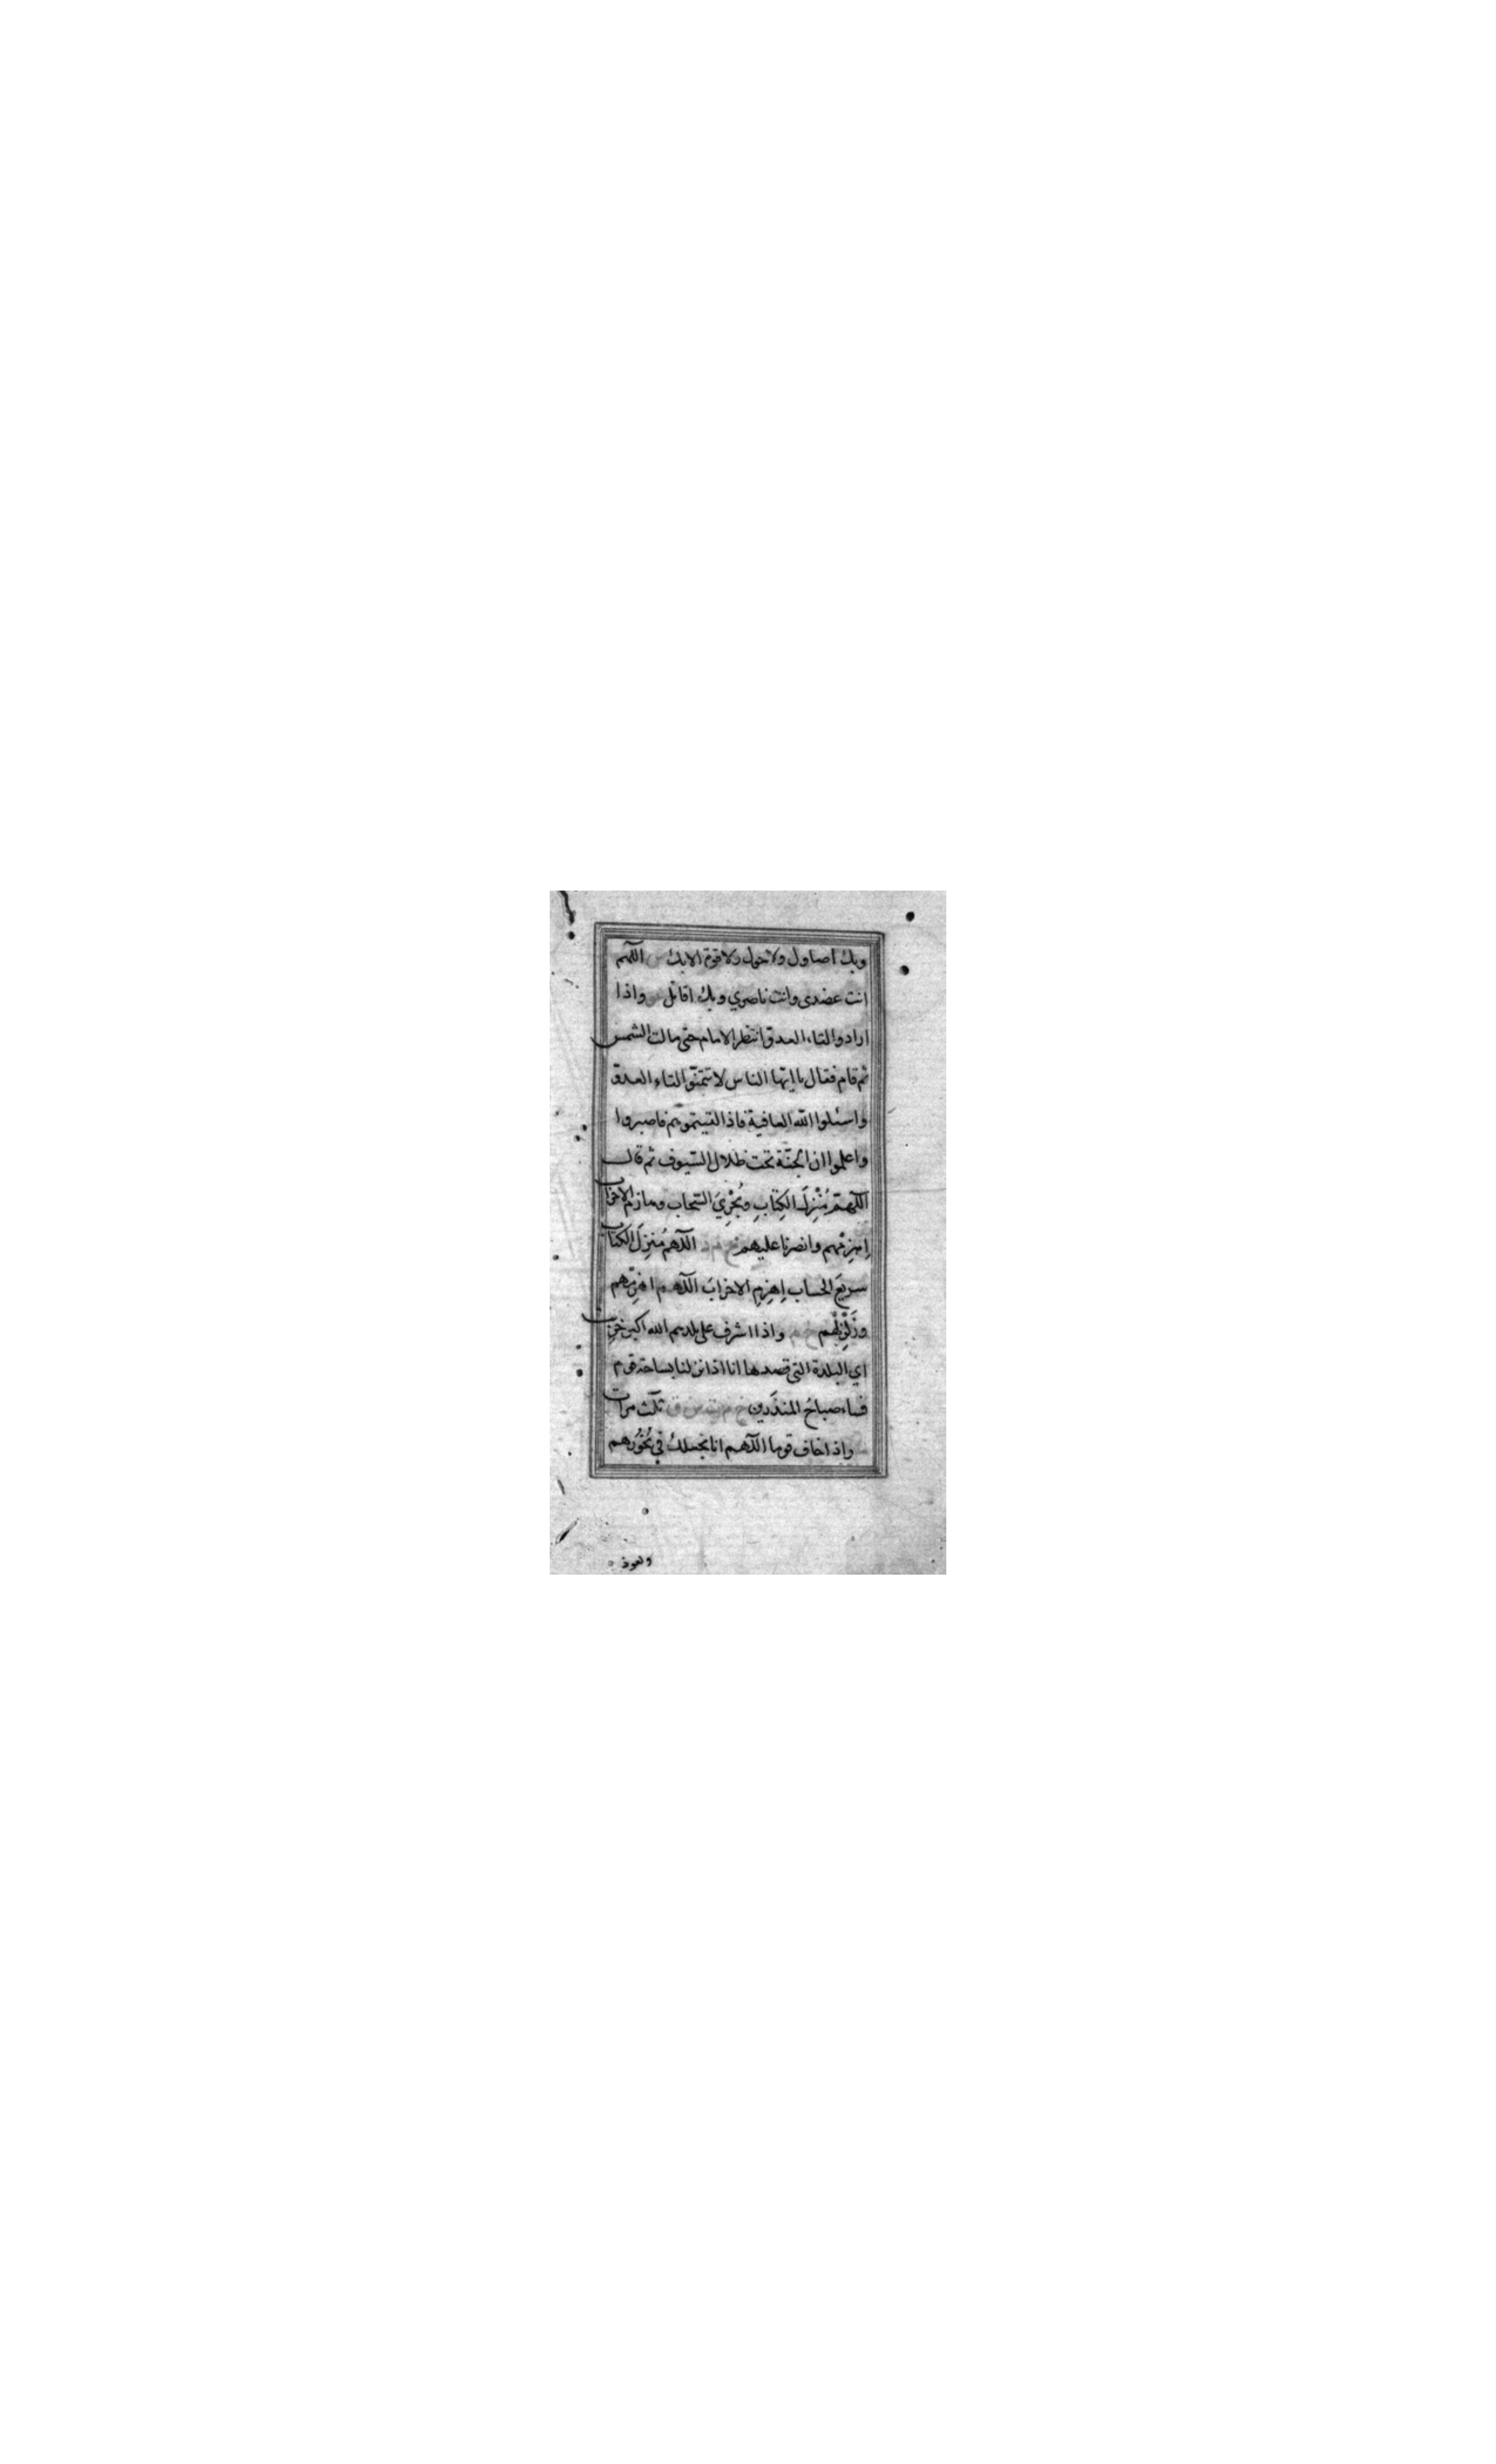 وبك اصاول ولا حول ولا قوة الا بك س اللهم
انت عضدى وانت ناصري وبك اقاتل واذا
ارادوا لقاء العدو انتظر الامام حتى مالت الشمس
ثم قام فقال يا ايها الناس لا تتمنّوا لقاء العدوّ
واسئلوا الله العافية فاذا لقيتموهم فاصبروا
واعلموا ان الجنّة تحت ظلال السّيوف ثم قال
اللّهمّ مُنْزِلَ الكِتابِ ومُجْرِيَ السّحاب وهازم الاحزاب
اِهزِمْهم وانصرنا عليهم خ م د اللّهم مُنزِلَ الكتاب
سريعَ الحساب اِهزِمِ الاحزابَ اللّهم اهزِمْهم
وزَلْزِلْهم خ م واذا اشرف على بلدهم الله اكبر خربت
اي البلدة التى قصدها انا اذا نزلنا بساحة قوم
فساء صباحُ المنذَرين خ م ت س ق ثلث مرات
واذا خاف قوما اللّهم انا نجعلك في نُحُورهم
ونعوذ